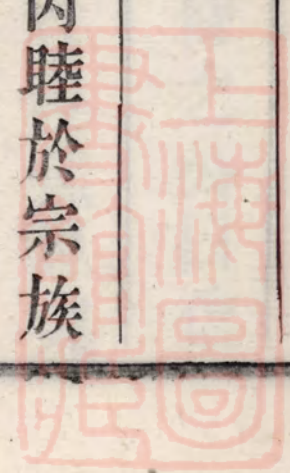 睦於宗族
上海圖
書館藏